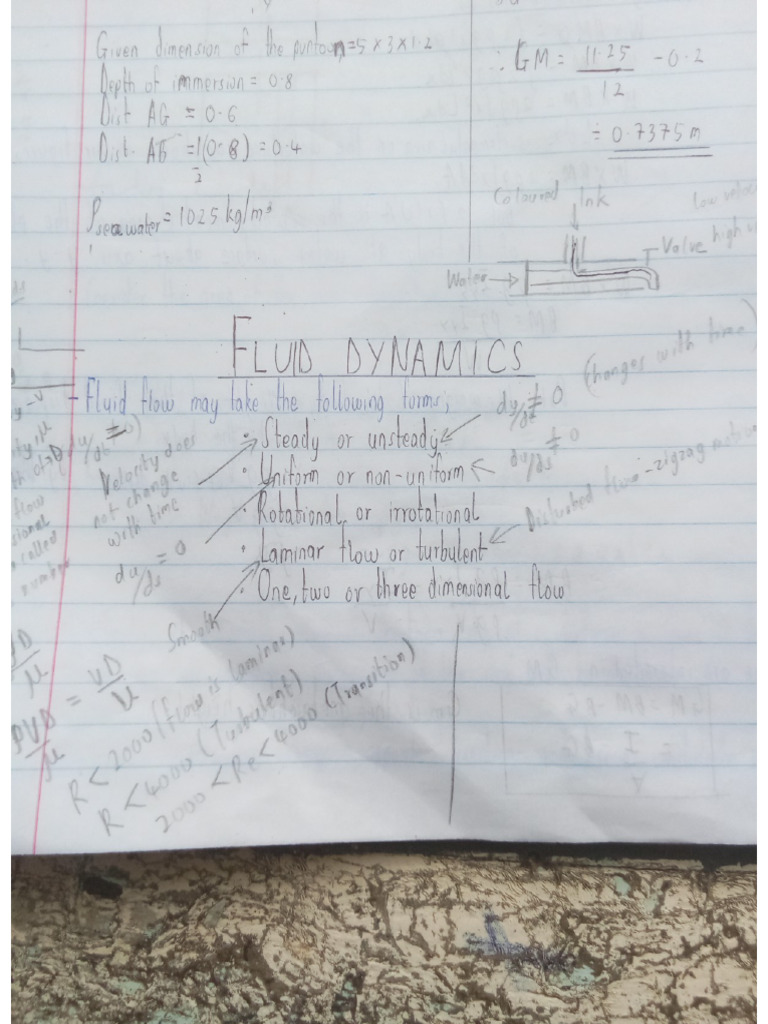 Given dimension of the puntoon, = 5 x 3 x 1.2
Depth of immersion = 0.8
Dist AG = 0.6
Dist. AB = 1/2 (0.8) = 0.4
ρ seawater = 1025 kg/m³
∴ GM = 11.25/12 - 0.2
= 0.7375 m
Coloured Ink
low
Valve high
Water
FLUID DYNAMICS
- Fluid flow may take the following forms;
• Steady or unsteady
• Uniform or non-uniform
• Rotational or irrotational
• Laminar flow or turbulent
• One, two or three dimensional flow
du/dt ≠ 0 (changes with time)
du/ds ≠ 0
Disturbed flow - zigzag motion
(du/dt = 0)
Velocity does
not change
with time
du/ds = 0
Smooth
flow
called
number
ρVD/μ = VD/ν
R < 2000 (Flow is laminar)
R < 4000 (Turbulent)
2000 < Re < 4000 (Transition)